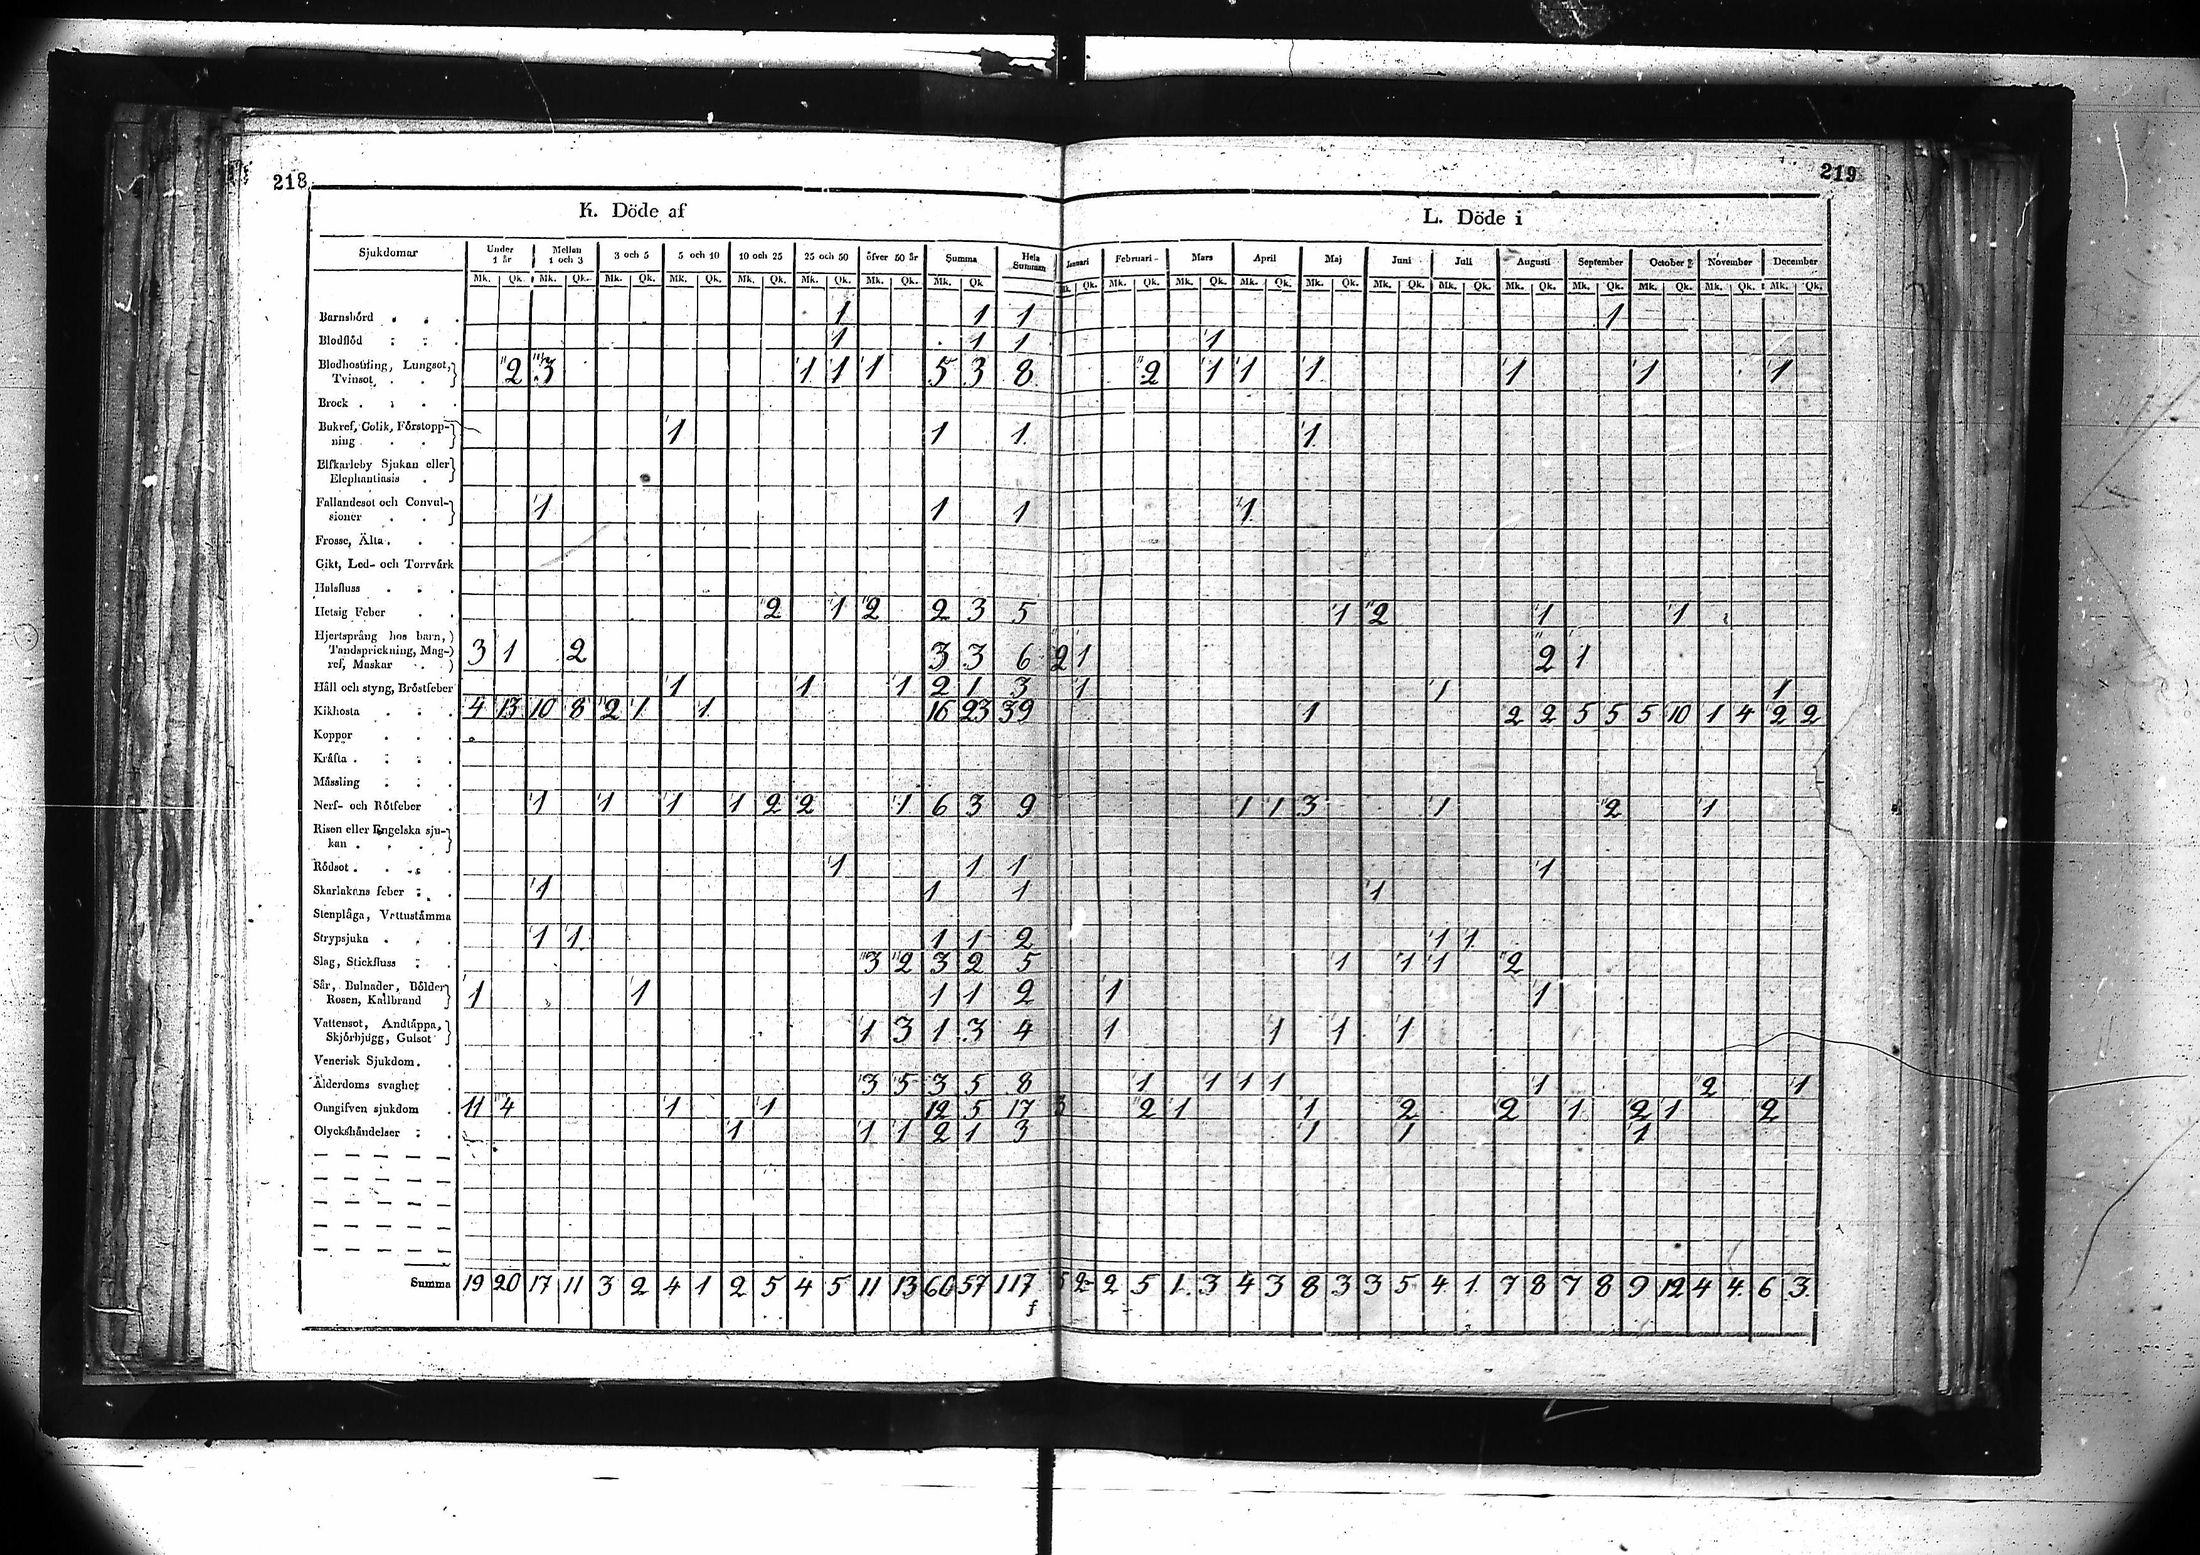 218
219
K. Döde af
L. Döde i
Sjukdomar Under 1 år Mellan 1 och 3 3 och 5 5 och 10 10 och 25 25 och 50 öfver 50 år Summa Hela Summan Januari Februari Mars April Maj Juni Juli Augusti September October November December
Mk. Qk. Mk. Qk. Mk. Qk. Mk. Qk. Mk. Qk. Mk. Qk. Mk. Qk. Mk. Qk Mk. Qk. Mk. Qk. Mk. Qk. Mk. Qk. Mk. Qk. Mk. Qk. Mk. Qk. Mk. Qk. Mk. Qk. Mk. Qk. Mk. Qk. Mk. Qk.
Barnsbörd 1 1 1 1
Blodflöd 1 1 1 1
Blodhostning, Lungsot,
Tvinsot 2 3 1 1 1 5 3 8 2 1 1 1 1 1 1
Brock
Bukref, Colik, Förstopp-
ning 1 1 1 1
Elfkarleby Sjukan eller
Elephantiasis
Fallandesot och Convul-
sioner 1 1 1 1
Frosse, Älta
Gikt, Led- och Torrvärk
Halsfluss
Hetsig Feber 2 1 2 2 3 5 1 2 1 1
Hjertsprång hos barn,
Tandsprickning, Mag-
ref, Maskar 3 1 2 3 3 6 2 1 2 1
Håll och styng, Bröstfeber 1 1 1 2 1 3 1 1 1
Kikhosta 4 13 10 8 2 1 1 16 23 39 1 2 2 5 5 5 10 1 4 2 2
Koppor
Kräfta
Mässling
Nerf- och Rötfeber 1 1 1 1 2 2 1 6 3 9 1 1 3 1 2 1
Risen eller Engelska sju-
kan
Rödsot 1 1 1 1
Skarlakans feber 1 1 1 1
Stenplåga, Vattustämma
Strypsjuka 1 1 1 1 2 1 1
Slag, Stickfluss 3 2 3 2 5 1 1 1 2
Sår, Bulnader, Bölder
Rosen, Kallbrand 1 1 1 1 2 1 1
Vattensot, Andtäppa,
Skjörbjugg, Gulsot 1 3 1 3 4 1 1 1 1
Venerisk Sjukdom
Ålderdoms svaghet 3 5 3 5 8 1 1 1 1 1 2 1
Oangifven sjukdom 11 4 1 1 12 5 17 3 2 1 1 2 2 1 2 1 2
Olyckshändelser 1 1 1 2 1 3 1 1 1
Summa 19 20 17 11 3 2 4 1 2 5 4 5 11 13 60 57 117 5 2 2 5 1 3 4 3 8 3 3 5 4 1 7 8 7 8 9 12 4 4 6 3